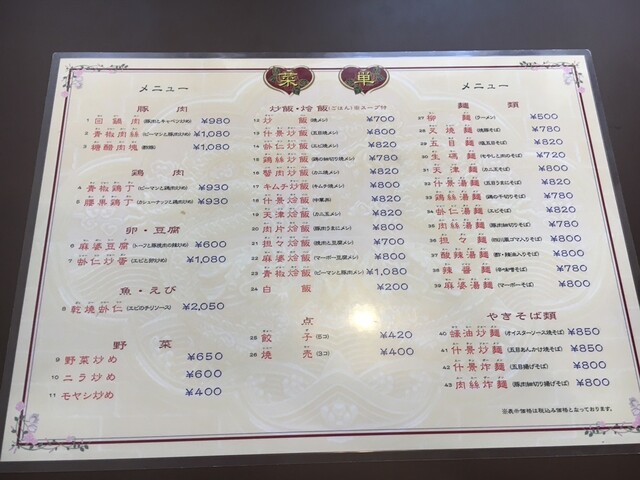 菜 単
メニュー
豚 肉
1 回鍋肉(豚肉とキャベツ炒め) ¥980
2 青椒肉絲(ピーマンと豚肉炒め) ¥1,080
3 糖醋肉塊(酢豚) ¥1,080
鶏 肉
4 青椒鶏丁(ピーマンと鶏肉炒め) ¥930
5 腰果鶏丁(カシューナッツと鶏肉炒め) ¥930
卵・豆腐
6 麻婆豆腐(トーフと豚挽肉の辣炒め) ¥600
7 蝦仁炒蛋(エビと卵炒め) ¥1,080
魚・えび
8 乾焼蝦仁(エビのチリソース) ¥2,050
野 菜
9 野菜炒め ¥650
10 ニラ炒め ¥600
11 モヤシ炒め ¥400
炒飯・烩飯(ごはん)※スープ付
12 炒飯(焼メシ) ¥700
13 什景炒飯(五目焼メシ) ¥800
14 蝦仁炒飯(エビ焼メシ) ¥820
15 鶏絲炒飯(鶏の細切り焼メシ) ¥780
16 蟹肉炒飯(カニ焼メシ) ¥820
17 キムチ炒飯(キムチ焼メシ) ¥800
18 什景烩飯(中華丼) ¥820
19 天津烩飯(カニ玉メシ) ¥820
20 肉片烩飯(豚肉うまにメシ) ¥800
21 担々炒飯 ¥700
22 麻婆烩飯(マーボー豆腐メシ) ¥800
23 青椒烩飯(ピーマンと豚肉メシ) ¥1,080
24 白飯 ¥200
点
25 餃子(6コ) ¥420
26 焼売(3コ) ¥400
メニュー
麺 類
27 柳麺(ラーメン) ¥500
28 叉焼麺(焼豚そば) ¥780
29 五目麺(塩五目そば) ¥820
30 生碼麺(モヤシと肉のそば) ¥720
31 天津麺(カニ玉そば) ¥800
32 什景湯麺(五目うま煮そば) ¥800
33 鶏絲湯麺(鶏の千切りそば) ¥780
34 蝦仁湯麺(エビそば) ¥820
35 肉絲湯麺(豚肉細切りそば) ¥780
36 担々麺 ¥780
37 酸辣湯麺(酢・辣油入りそば) ¥800
38 辣醤麺 ¥780
39 麻婆湯麺(マーボーそば) ¥800
やきそば類
40 蠔油炒麺(オイスターソース焼そば) ¥850
41 什景炒麺(五目あんかけ焼そば) ¥850
42 什景炸麺(五目揚げそば) ¥800
43 肉絲炸麺(豚肉細切り揚げそば) ¥800
※表示価格は税込み価格となっております。